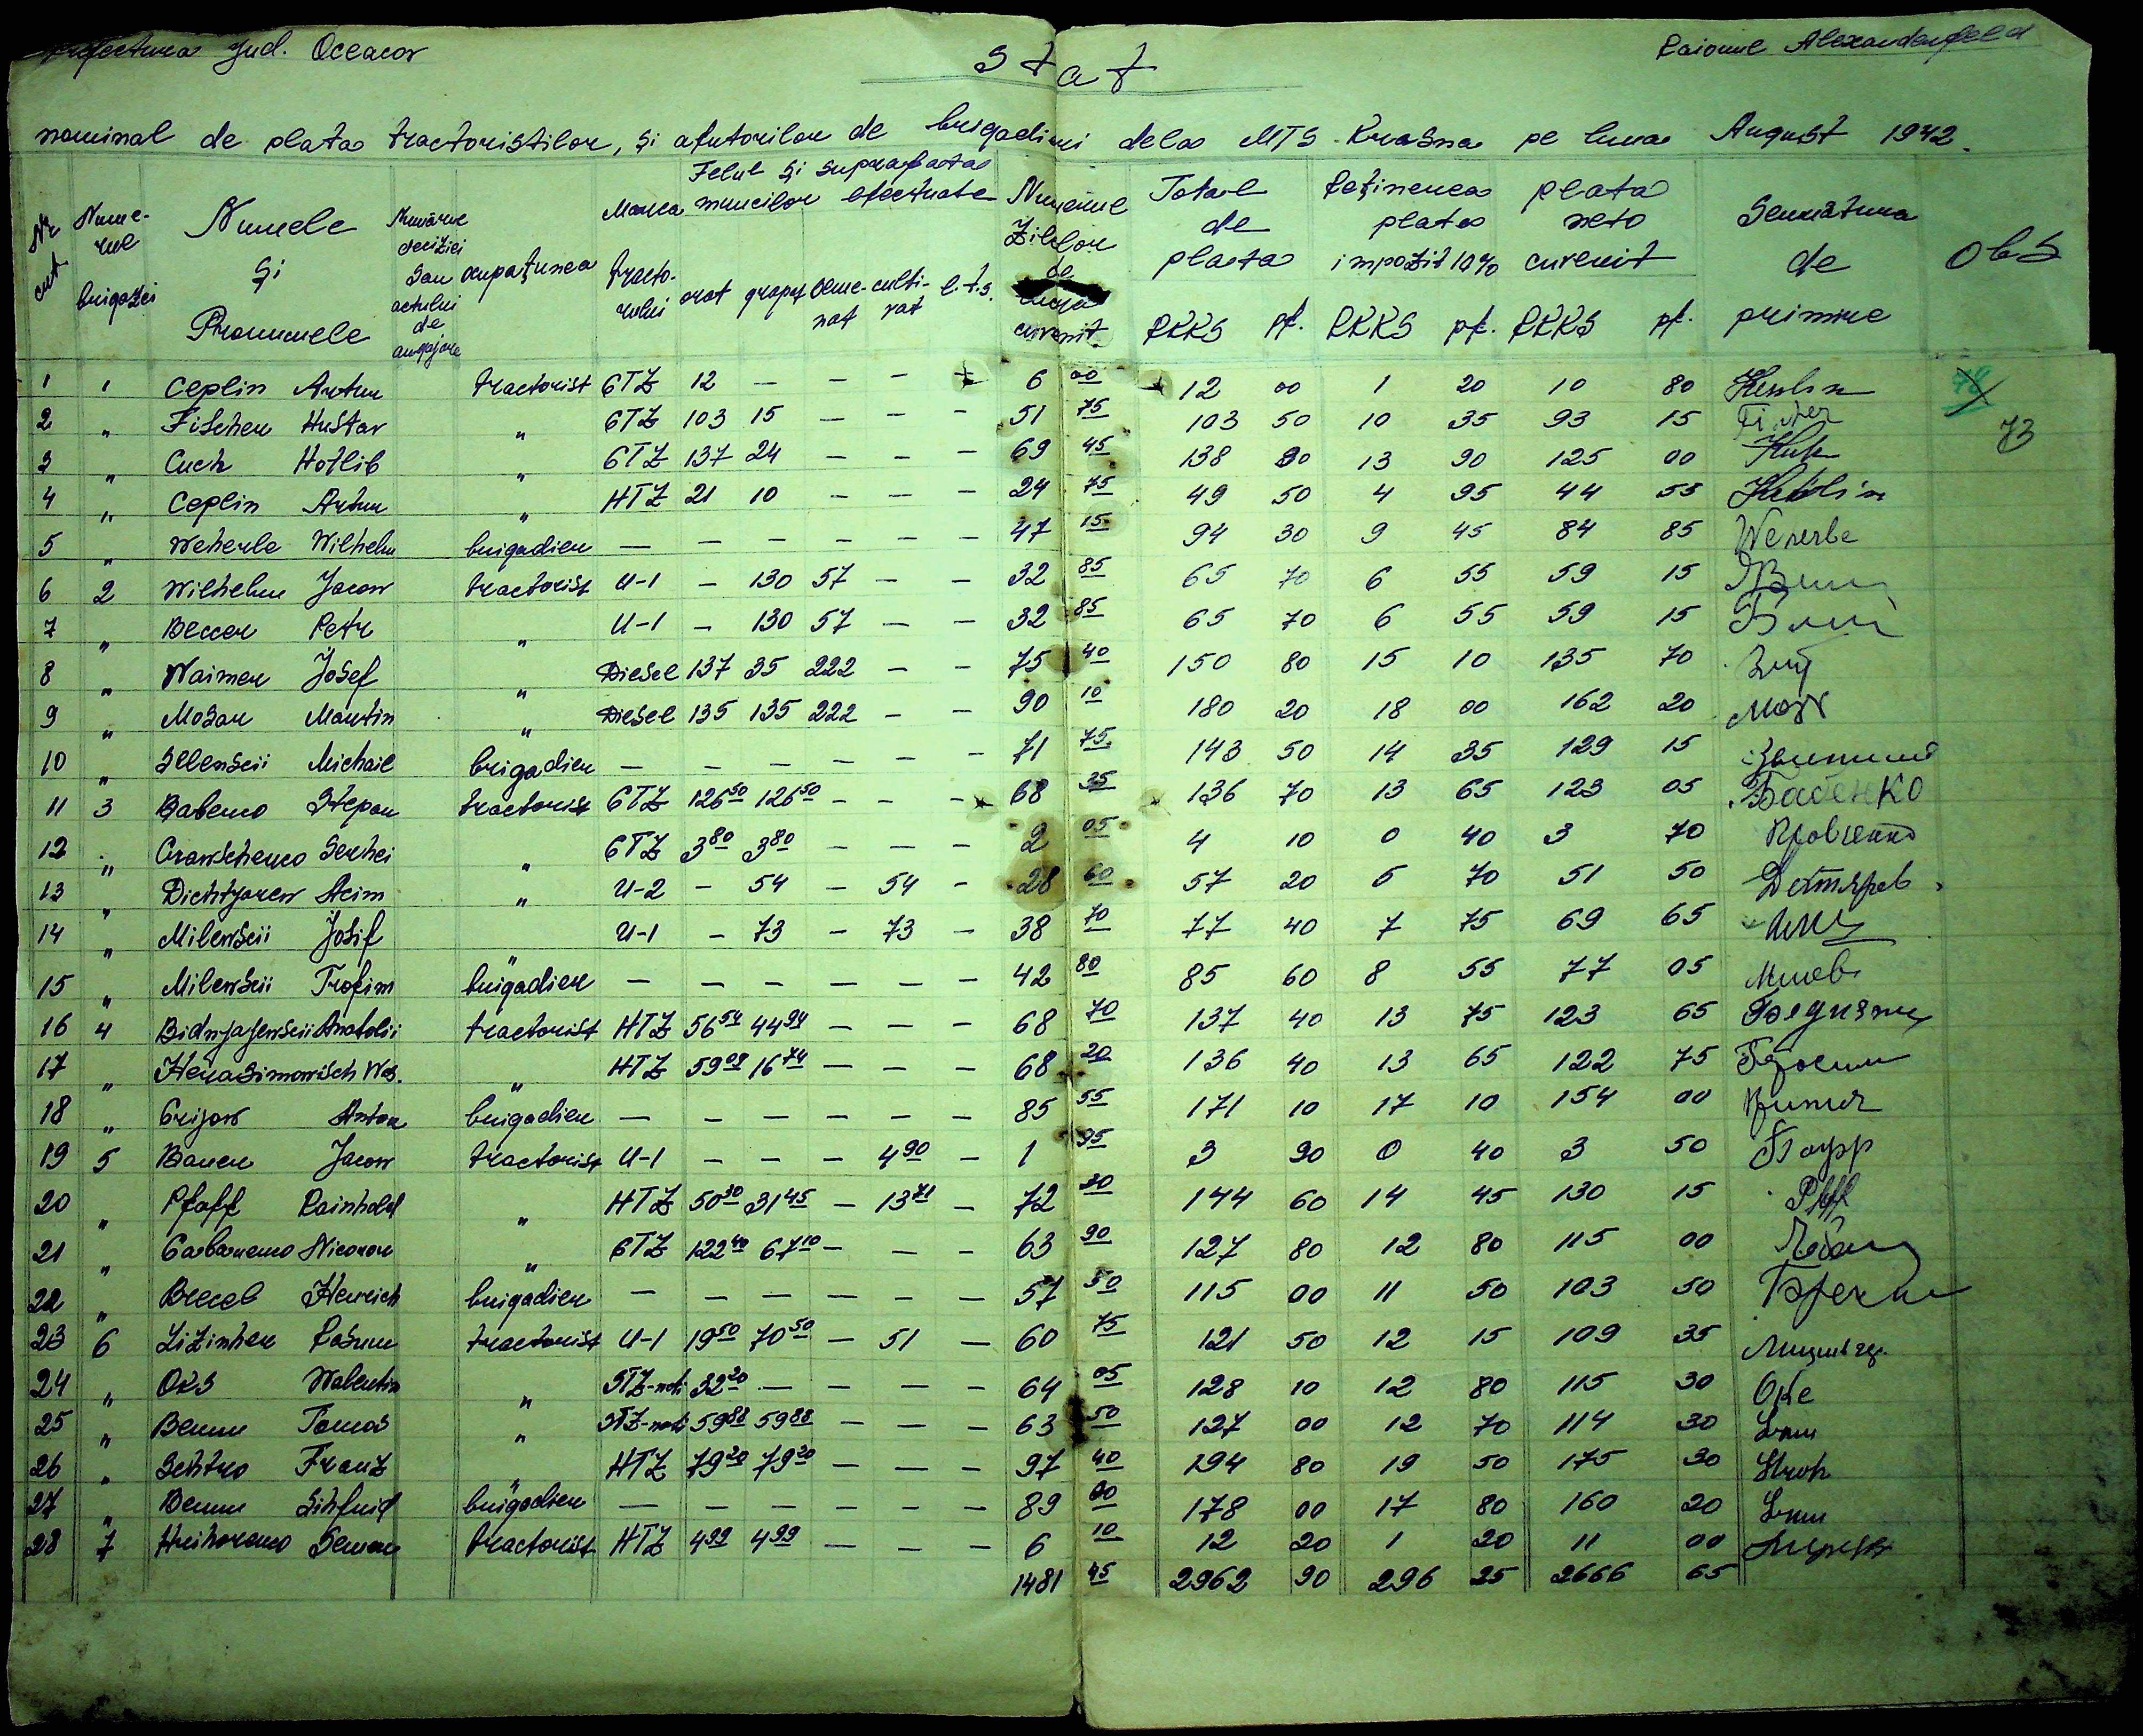 Prefectura Jud. Oceacov
Raionul Alexanderfeld
Stat
nominal de plata tractoristilor, și ajutorilor de brigadieri dela MTS Krasna pe luna August 1942.
Nr crt Numerul brigăzei Numele și Pronumele Numărul deciziei sau actului de angajare ocupațunea Marca tractorului Felul și suprafața muncilor efectuate arat grapat semenat cultivat l.t.s. Numerul zilelor de lucru curenit Total de plata RKKS pf. Reținerea plata impozit 10% RKKS pf. plata neto curenit RKKS pf. Semnătura de primire Obs
1 1 Ceplin Artur tractorist CTZ 12 — — — 6 00 12 00 1 20 10 80
78
2 " Fischer Hustav " CTZ 103 15 — — — 51 75 103 50 10 35 93 15
73
3 " Cuch Hotlib " CTZ 137 24 — — — 69 45 138 90 13 90 125 00
4 " Ceplin Artur " HTZ 21 10 — — — 24 75 49 50 4 95 44 55
5 " Weherle Wilhelm brigadier — — — — — — 47 15 94 30 9 45 84 85
6 2 Wilhelm Jacow tractorist U-1 — 130 57 — — 32 85 65 70 6 55 59 15
7 " Beccer Petr " U-1 — 130 57 — — 32 85 65 70 6 55 59 15
8 " Waimer Josef " Diesel 137 35 222 — — 75 40 150 80 15 10 135 70
9 " Mosar Martin " Diesel 135 135 222 — — 90 10 180 20 18 00 162 20
10 " Selenscii Michail brigadier — — — — — — 71 75 143 50 14 35 129 15
11 3 Babenco Stepan tractorist CTZ 126 50 126 50 — — — 68 35 136 70 13 65 123 05 Бабенко
12 " Crawschenco Serhei " CTZ 3 80 3 80 — — — 2 05 4 10 0 40 3 70
13 " Dichtyarew Acim " U-2 — 54 — 54 — 28 60 57 20 5 70 51 50
14 " Milewscii Josif " U-1 — 73 — 73 — 38 70 77 40 7 75 69 65
15 " Milewscii Trofim brigadier — — — — — — 42 80 85 60 8 55 77 05
16 4 Anatolii tractorist HTZ 56 54 44 94 — — — 68 70 137 40 13 75 123 65
17 " Herasimowisch Was. " HTZ 59 08 16 74 — — — 68 20 136 40 13 65 122 75
18 " Grijow Anton brigadier — — — — — — 85 55 171 10 17 10 154 00
19 5 Bauer Jacow tractorist U-1 — — — 4 90 — 1 95 3 90 0 40 3 50
20 " Pfaff Rainhold " HTZ 50 30 31 45 — 13 71 — 72 30 144 60 14 45 130 15
21 " Niconor " CTZ 122 40 67 10 — — — 63 90 127 80 12 80 115 00
22 " Henrich brigadier — — — — — — 57 50 115 00 11 50 103 50
23 6 Lizinher tractorist U-1 19 50 70 50 — 51 — 60 75 121 50 12 15 109 35
24 " Ocs Walentin " STZ-nati 32 20 — — — — 64 05 128 10 12 80 115 30
25 " Tomas " STZ-nati 59 88 59 88 — — — 63 50 127 00 12 70 114 30
26 " Schtro Franz " HTZ 79 20 79 20 — — — 97 40 194 80 19 50 175 30
27 " Sihfrid brigadier — — — — — — 89 00 178 00 17 80 160 20
28 7 Hrihorenco Semen tractorist HTZ 4 99 4 99 — — — 6 10 12 20 1 20 11 00
1481 45 2962 90 296 25 2666 65